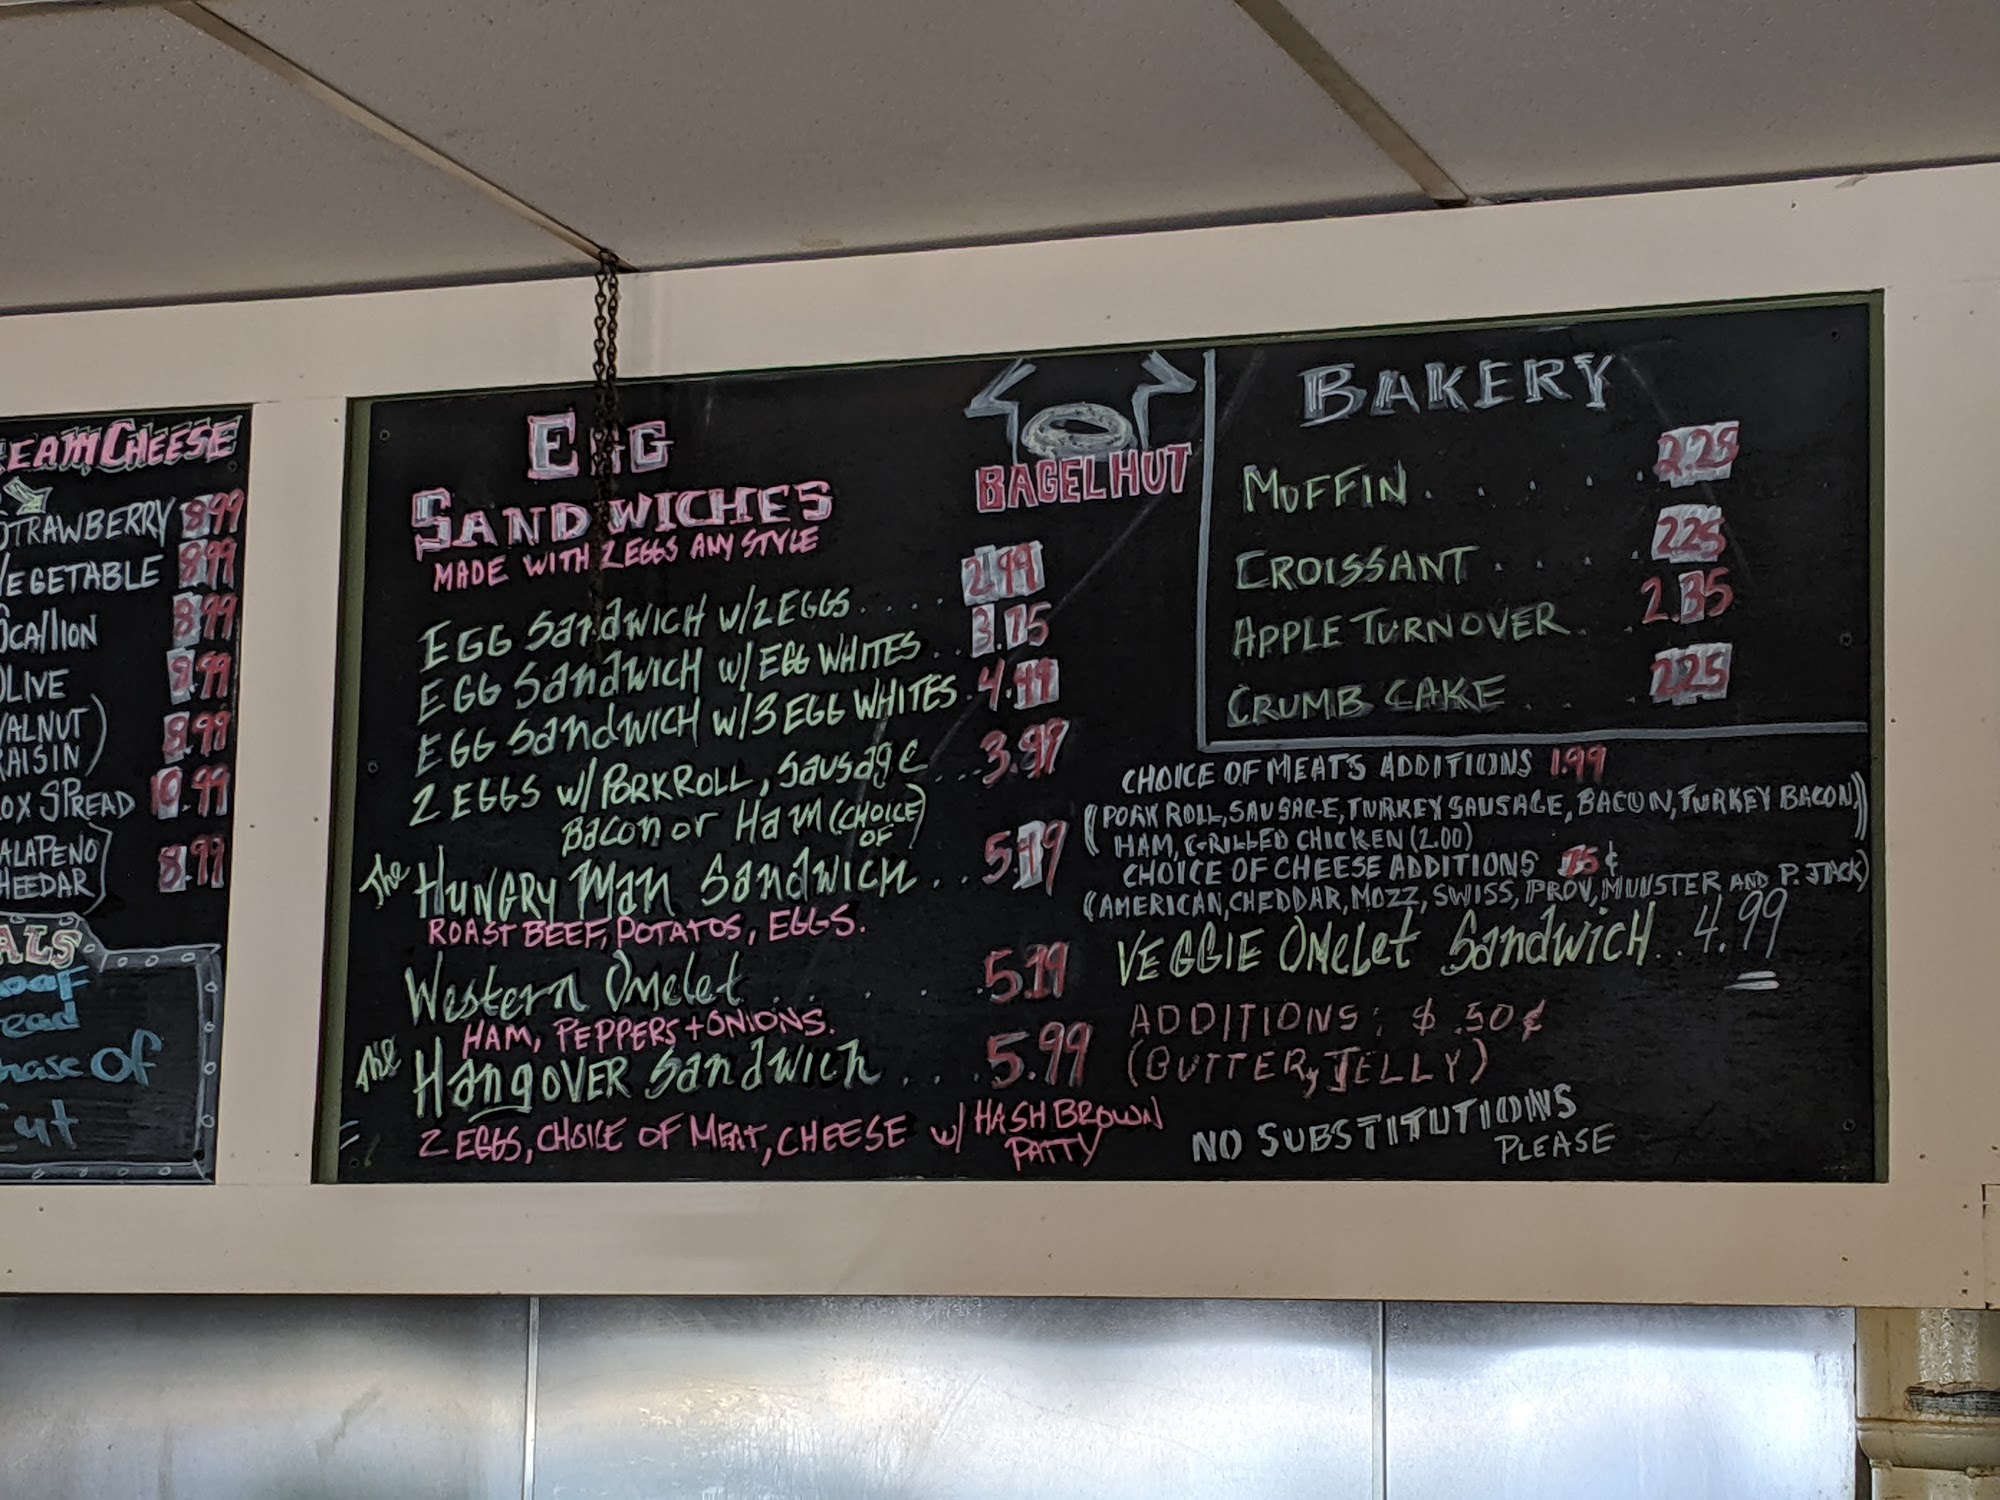 CHEESE
STRAWBERRY 8.99
VEGETABLE 8.99
SCALLION 8.99
OLIVE 8.99
WALNUT
RAISIN 8.99
LOX SPREAD 10.99
JALAPENO
CHEEDAR 8.99
EGG
SANDWICHES
MADE WITH 2 EGGS ANY STYLE
BAGEL HUT
EGG SANDWICH W/2 EGGS.... 2.99
EGG SANDWICH W/ EGG WHITES.. 3.75
EGG SANDWICH W/3 EGG WHITES. 4.49
2 EGGS W/ PORKROLL, SAUSAGE ... 3.97
BACON OR HAM (CHOICE OF)
The HUNGRY MAN SANDWICH.. 5.79
ROAST BEEF, POTATOS, EGGS.
Western Omelet . . . . . 5.79
HAM, PEPPERS + ONIONS.
The HANGOVER SANDWICH ... 5.99
2 EGGS, CHOICE OF MEAT, CHEESE W/ HASH BROWN
PATTY
BAKERY
MUFFIN . . . . 2.25
CROISSANT . . . . 2.25
APPLE TURNOVER . . 2.35
CRUMB CAKE . . . 2.25
CHOICE OF MEATS ADDITIONS 1.99
(PORK ROLL, SAUSAGE, TURKEY SAUSAGE, BACON, TURKEY BACON,)
HAM, GRILLED CHICKEN (2.00)
CHOICE OF CHEESE ADDITIONS .75 ¢
(AMERICAN, CHEDDAR, MOZZ, SWISS, PROV, MUNSTER AND P. JACK)
VEGGIE OMELET SANDWICH.. 4.99
ADDITIONS: $.50¢
(BUTTER, JELLY)
NO SUBSTITUTIONS
PLEASE